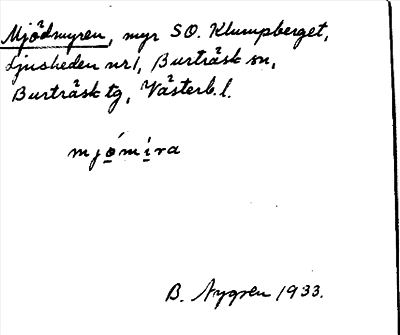 Mjödmyren, myr SO. Klumpberget,
Ljusheden nr 1, Burträsk sn,
Burträsk tg, Västerb. l.
mjọ́mi̱ra
B. Nygren 1933.